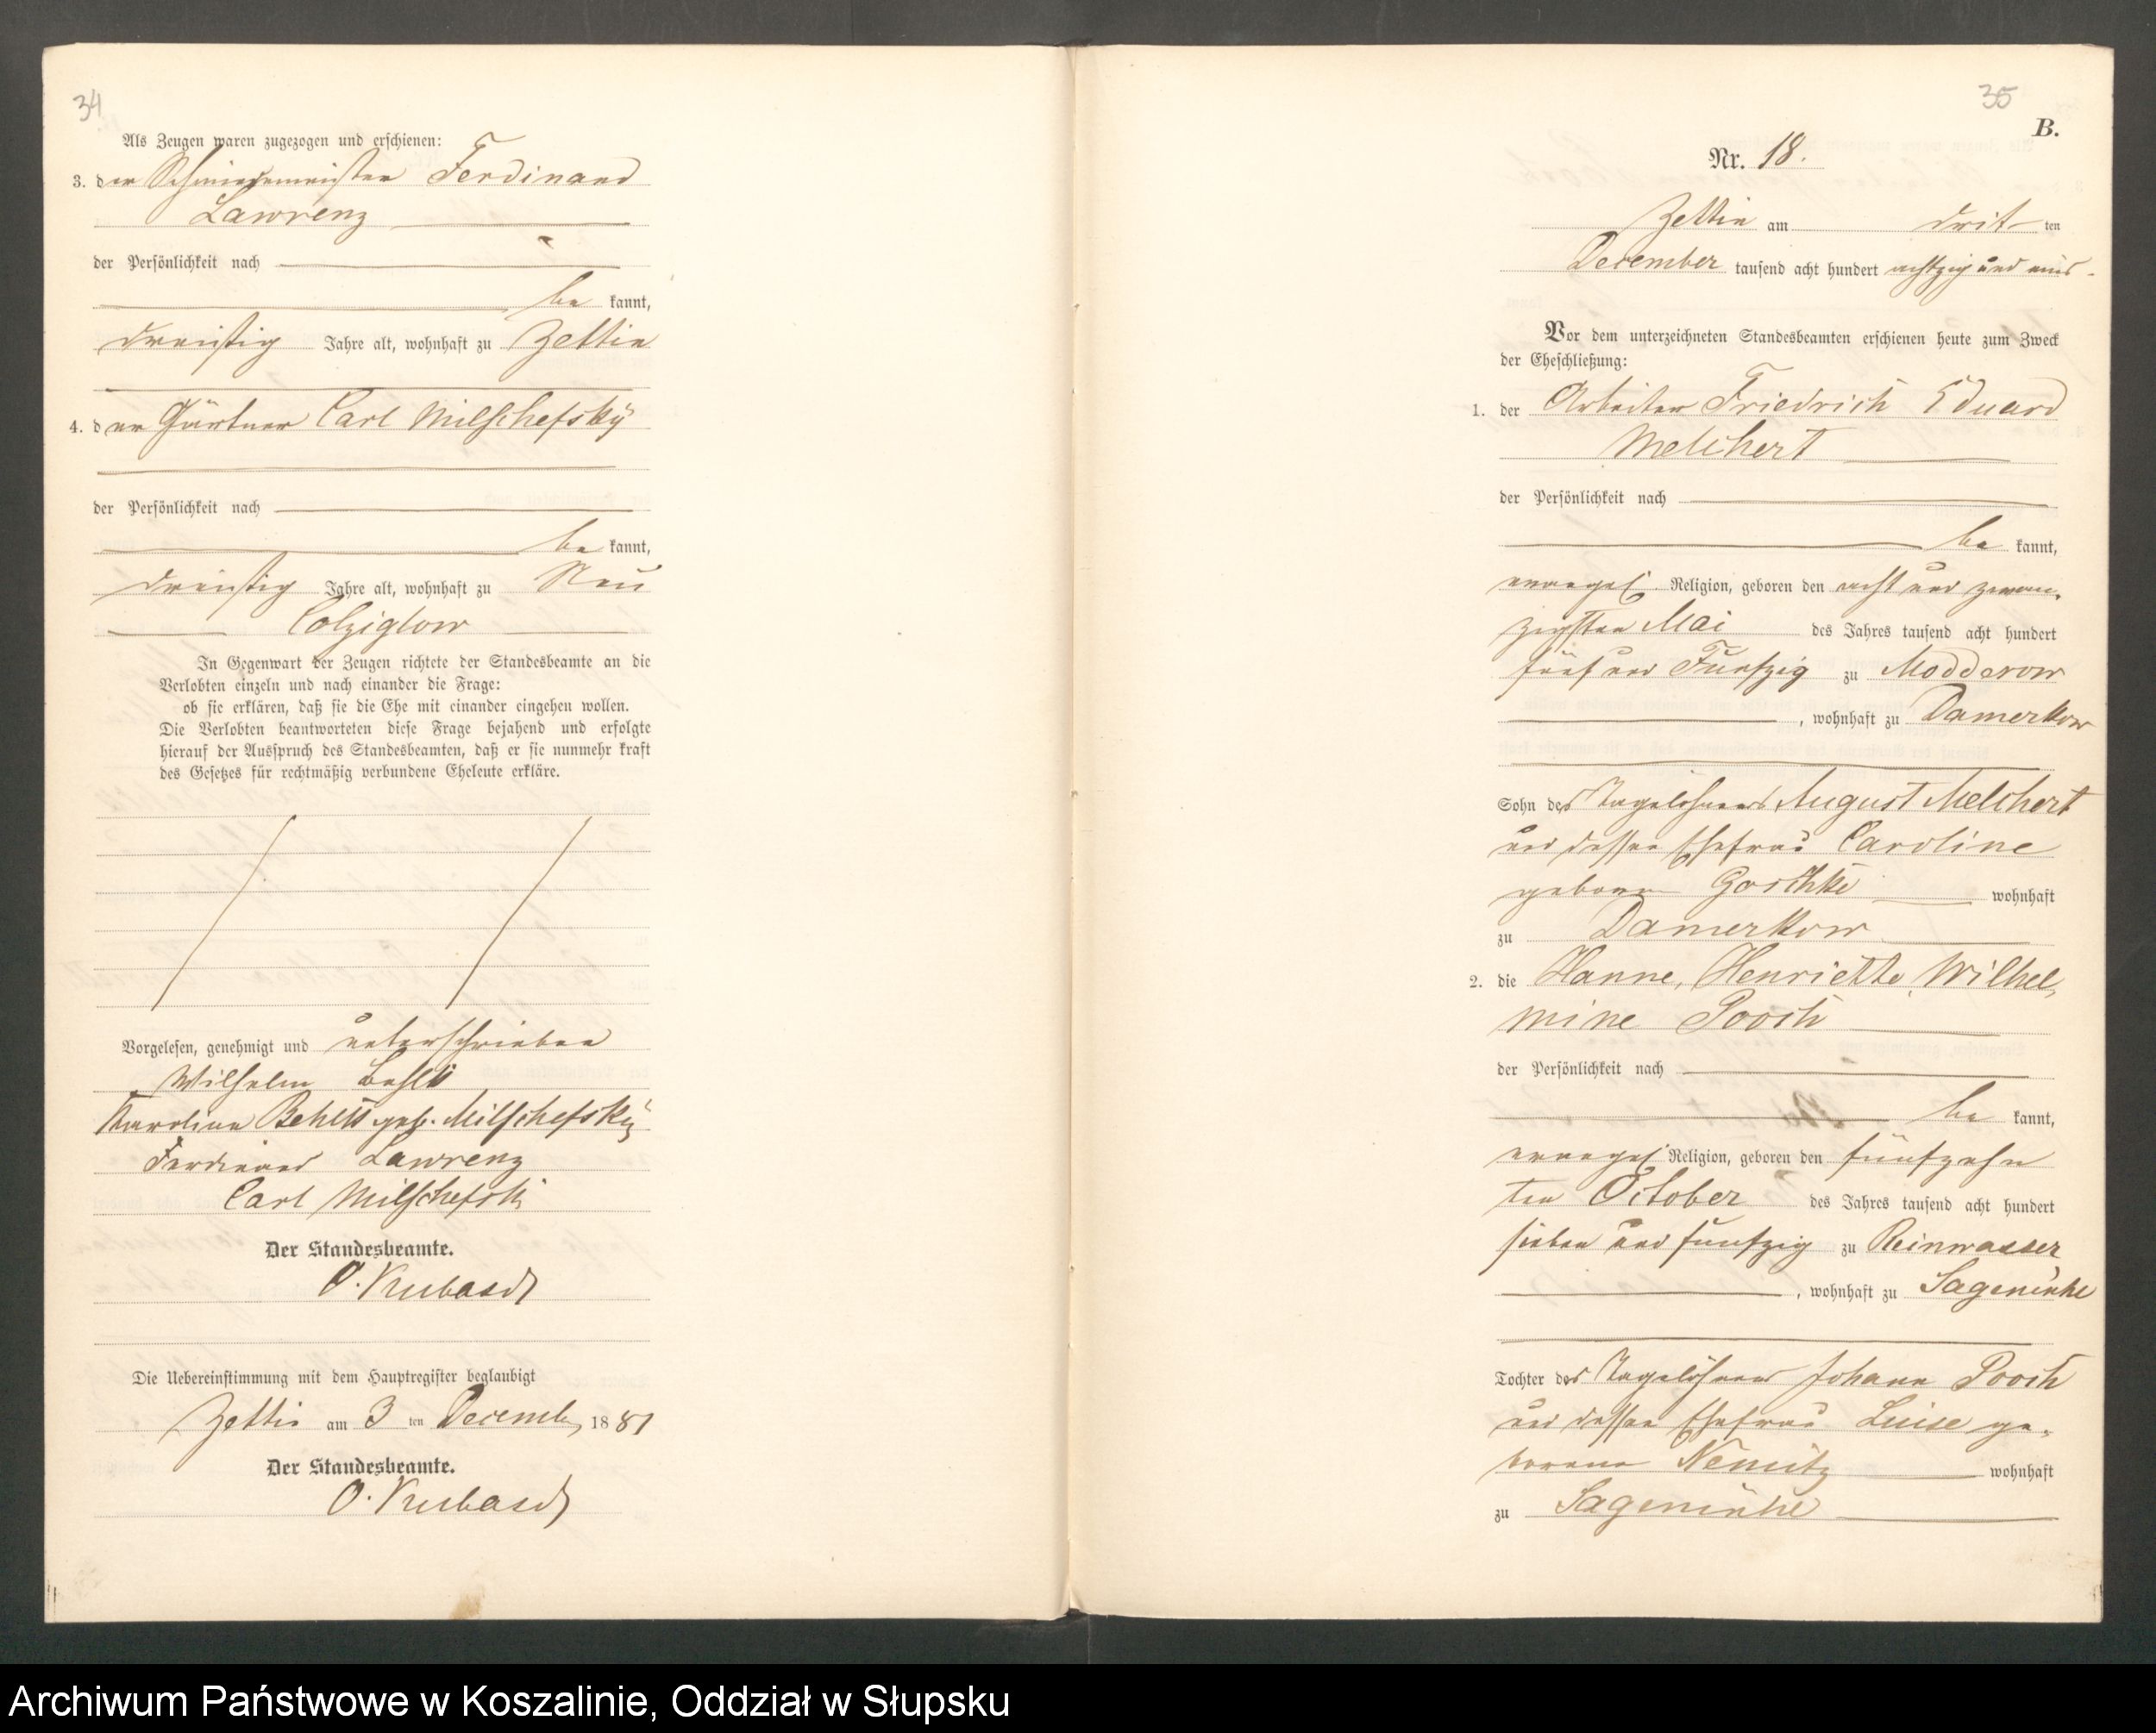 34
Als Zeugen waren zugezogen und erschienen:
3. der Schmiedemeister Ferdinand
Lawrenz
der Persönlichkeit nach
be kannt,
dreißig Jahre alt, wohnhaft zu Zettin
4. der Gärtner Carl Milschefsky
der Persönlichkeit nach
be kannt,
dreißig Jahre alt, wohnhaft zu Neu
Colziglow
In Gegenwart der Zeugen richtete der Standesbeamte an die
Verlobten einzeln und nach einander die Frage:
ob sie erklären, daß sie die Ehe mit einander eingehen wollen.
Die Verlobten beantworteten diese Frage bejahend und erfolgte
hierauf der Ausspruch des Standesbeamten, daß er sie nunmehr kraft
des Gesetzes für rechtmäßig verbundene Eheleute erkläre.
Vorgelesen, genehmigt und unterschrieben
Wilhelm
Karoline geb. Milschefsky
Ferdinand Lawrenz
Carl Milschefski
Der Standesbeamte.
O. Kubasch
Die Uebereinstimmung mit dem Hauptregister beglaubigt
Zettin am 3 ten Decemb 1881
Der Standesbeamte.
O. Kubasch
35
B.
Nr. 18.
Zettin am drit ten
December tausend acht hundert achtzig und eins.
Vor dem unterzeichneten Standesbeamten erschienen heute zum Zweck
der Eheschließung:
1. der Arbeiter Friedrich Eduard
Melchert
der Persönlichkeit nach
be kannt,
evangel. Religion, geboren den acht und zwan-
zigsten Mai des Jahres tausend acht hundert
fünf und Funfzig zu Modderow
, wohnhaft zu Damerkow
Sohn des Tagelöhners August Melchert
und dessen Ehefrau Caroline
geboren Goschke wohnhaft
zu Damerkow
2. die Hanne, Henriette, Wilhel-
mine Pooch
der Persönlichkeit nach
be kannt,
evangel. Religion, geboren den fünfzehn
ten October des Jahres tausend acht hundert
sieben und funfzig zu Reinwasser
, wohnhaft zu Sagemühl
Tochter des Tagelöhners Johann Pooch
und dessen Ehefrau Luise ge-
borene Nemitz wohnhaft
zu Sagemühl
Archiwum Państwowe w Koszalinie, Oddział w Słupsku